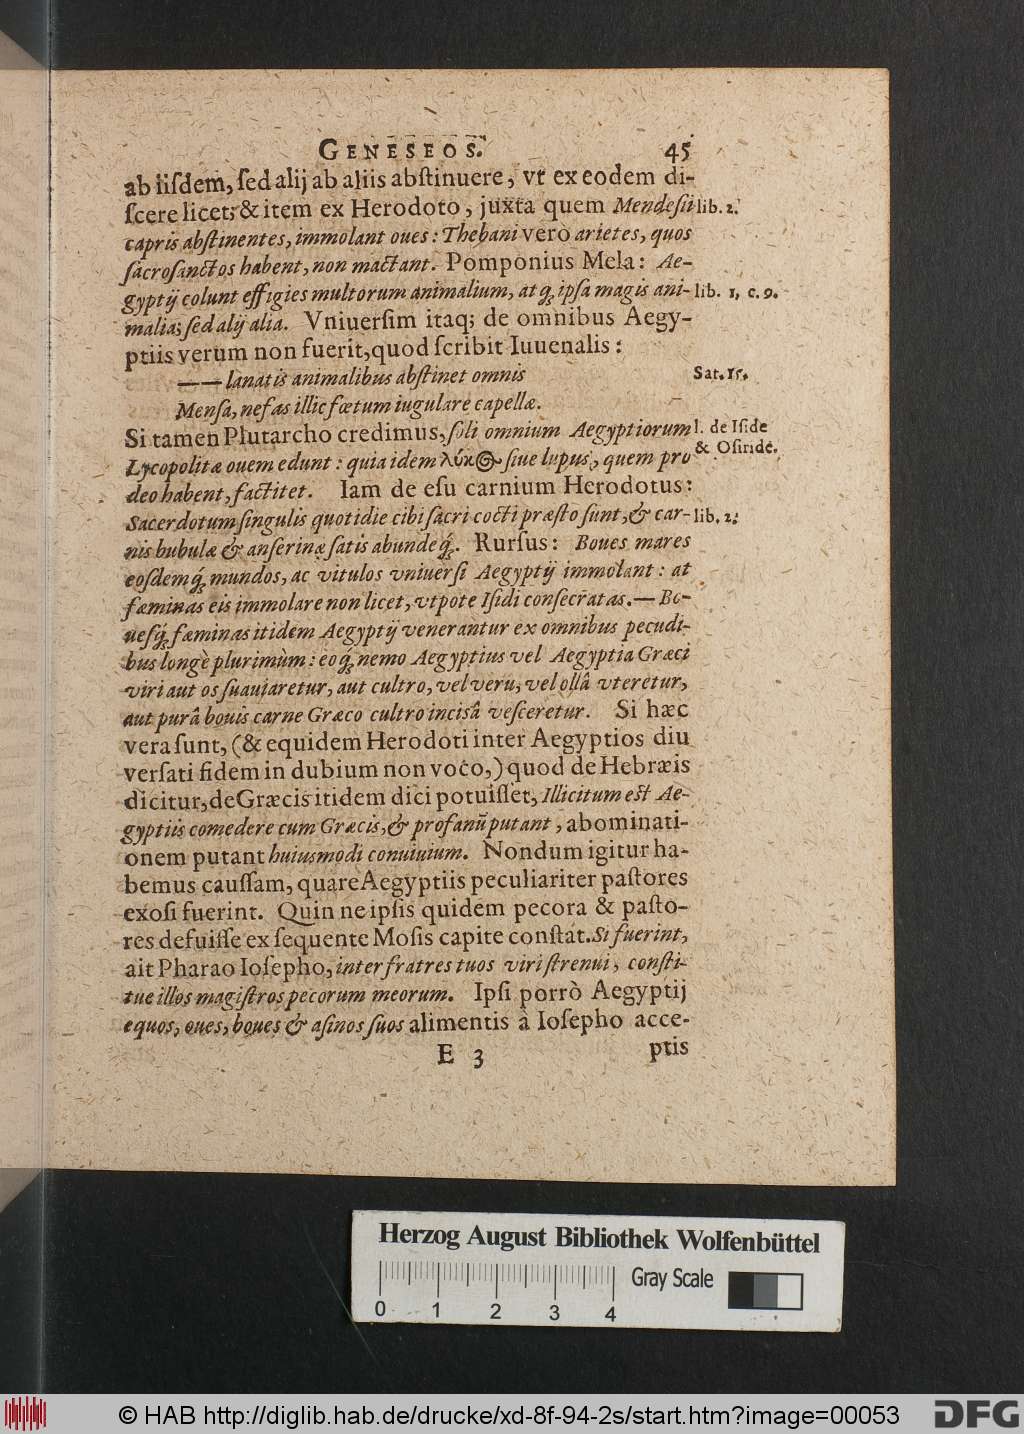 GENESEOS. 45
ab iisdem, sed alij ab aliis abstinuere, vt ex eodem di-
scere licet; & item ex Herodoto, juxta quem Mendesii lib. 2.
capris abstinentes, immolant oues: Thebani vero arietes, quos
sacrosanctos habent, non mactant. Pomponius Mela: Ae-
gyptij colunt effigies multorum animalium, atq; ipsa magis ani- lib. 1, c. 9.
malia; sed alij alia. Vniuersim itaq; de omnibus Aegy-
ptiis verum non fuerit, quod scribit Iuuenalis:
—— lanatis animalibus abstinet omnis Sat. 15.
Mensa, nefas illic fœtum iugulare capellæ.
Si tamen Plutarcho credimus, soli omnium Aegyptiorum l. de Iside
Lycopolitæ ouem edunt: quia idem λύκος siue lupus, quem pro & Osiride.
deo habent, factitet. Iam de esu carnium Herodotus:
Sacerdotum singulis quotidie cibi sacri cocti præsto sunt, & car- lib. 2.
nis bubulæ & anserinæ satis abundeq́;. Rursus: Boues mares
eosdemq́; mundos, ac vitulos vniuersi Aegyptij immolant: at
fæminas eis immolare non licet, vtpote Isidi consecratas. — Bo-
uesq́; fæminas itidem Aegyptij venerantur ex omnibus pecudi-
bus longè plurimùm: eoq́; nemo Aegyptius vel Aegyptia Græci
viri aut os suauiaretur, aut cultro, vel veru, vel ollâ vteretur,
aut purâ bouis carne Græco cultro incisâ vesceretur. Si hæc
vera sunt, (& equidem Herodoti inter Aegyptios diu
versati fidem in dubium non voco,) quod de Hebræis
dicitur, de Græcis itidem dici potuisset, Illicitum est Ae-
gyptiis comedere cum Græcis, & profanū putant, abominati-
onem putant huiusmodi conuiuium. Nondum igitur ha-
bemus caussam, quare Aegyptiis peculiariter pastores
exosi fuerint. Quin ne ipsis quidem pecora & pasto-
res defuisse ex sequente Mosis capite constat. Si fuerint,
ait Pharao Iosepho, inter fratres tuos viri strenui, consti-
tue illos magistros pecorum meorum. Ipsi porrò Aegyptij
equos, oues, boues & asinos suos alimentis à Iosepho acce-
E 3 ptis
Herzog August Bibliothek Wolfenbüttel
Gray Scale
0 1 2 3 4
© HAB http://diglib.hab.de/drucke/xd-8f-94-2s/start.htm?image=00053 DFG